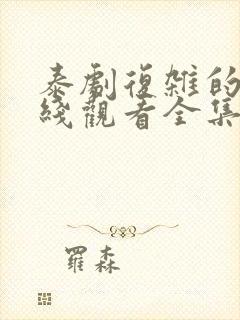 泰劇復雜的
綫觀看全集
羅森